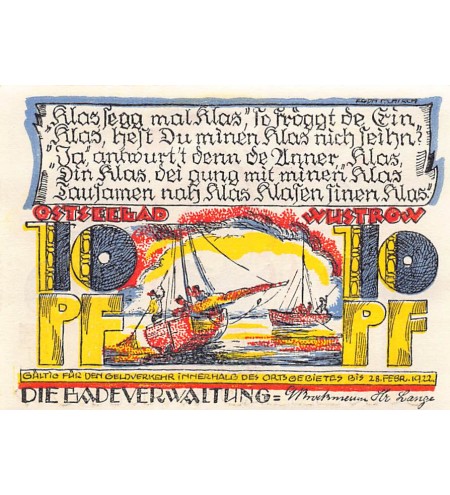 "Klas segg mal Klas" so fröggt de Ein,
"Klas, hest Du minen Klas nich seihn?"
"Ja", antwurt't denn de Anner, "Klas,
"Din Klas, dei gung mit minen Klas
Tausamen nah Klas Klasen sinen Klas"
OSTSEEBAD WUSTROW
10 10
PF PF
GÜLTIG FÜR DEN GELDVERKEHR INNERHALB DES ORTSGEBIETES BIS 28. FEBR. 1922.
DIE BADEVERWALTUNG = Lange